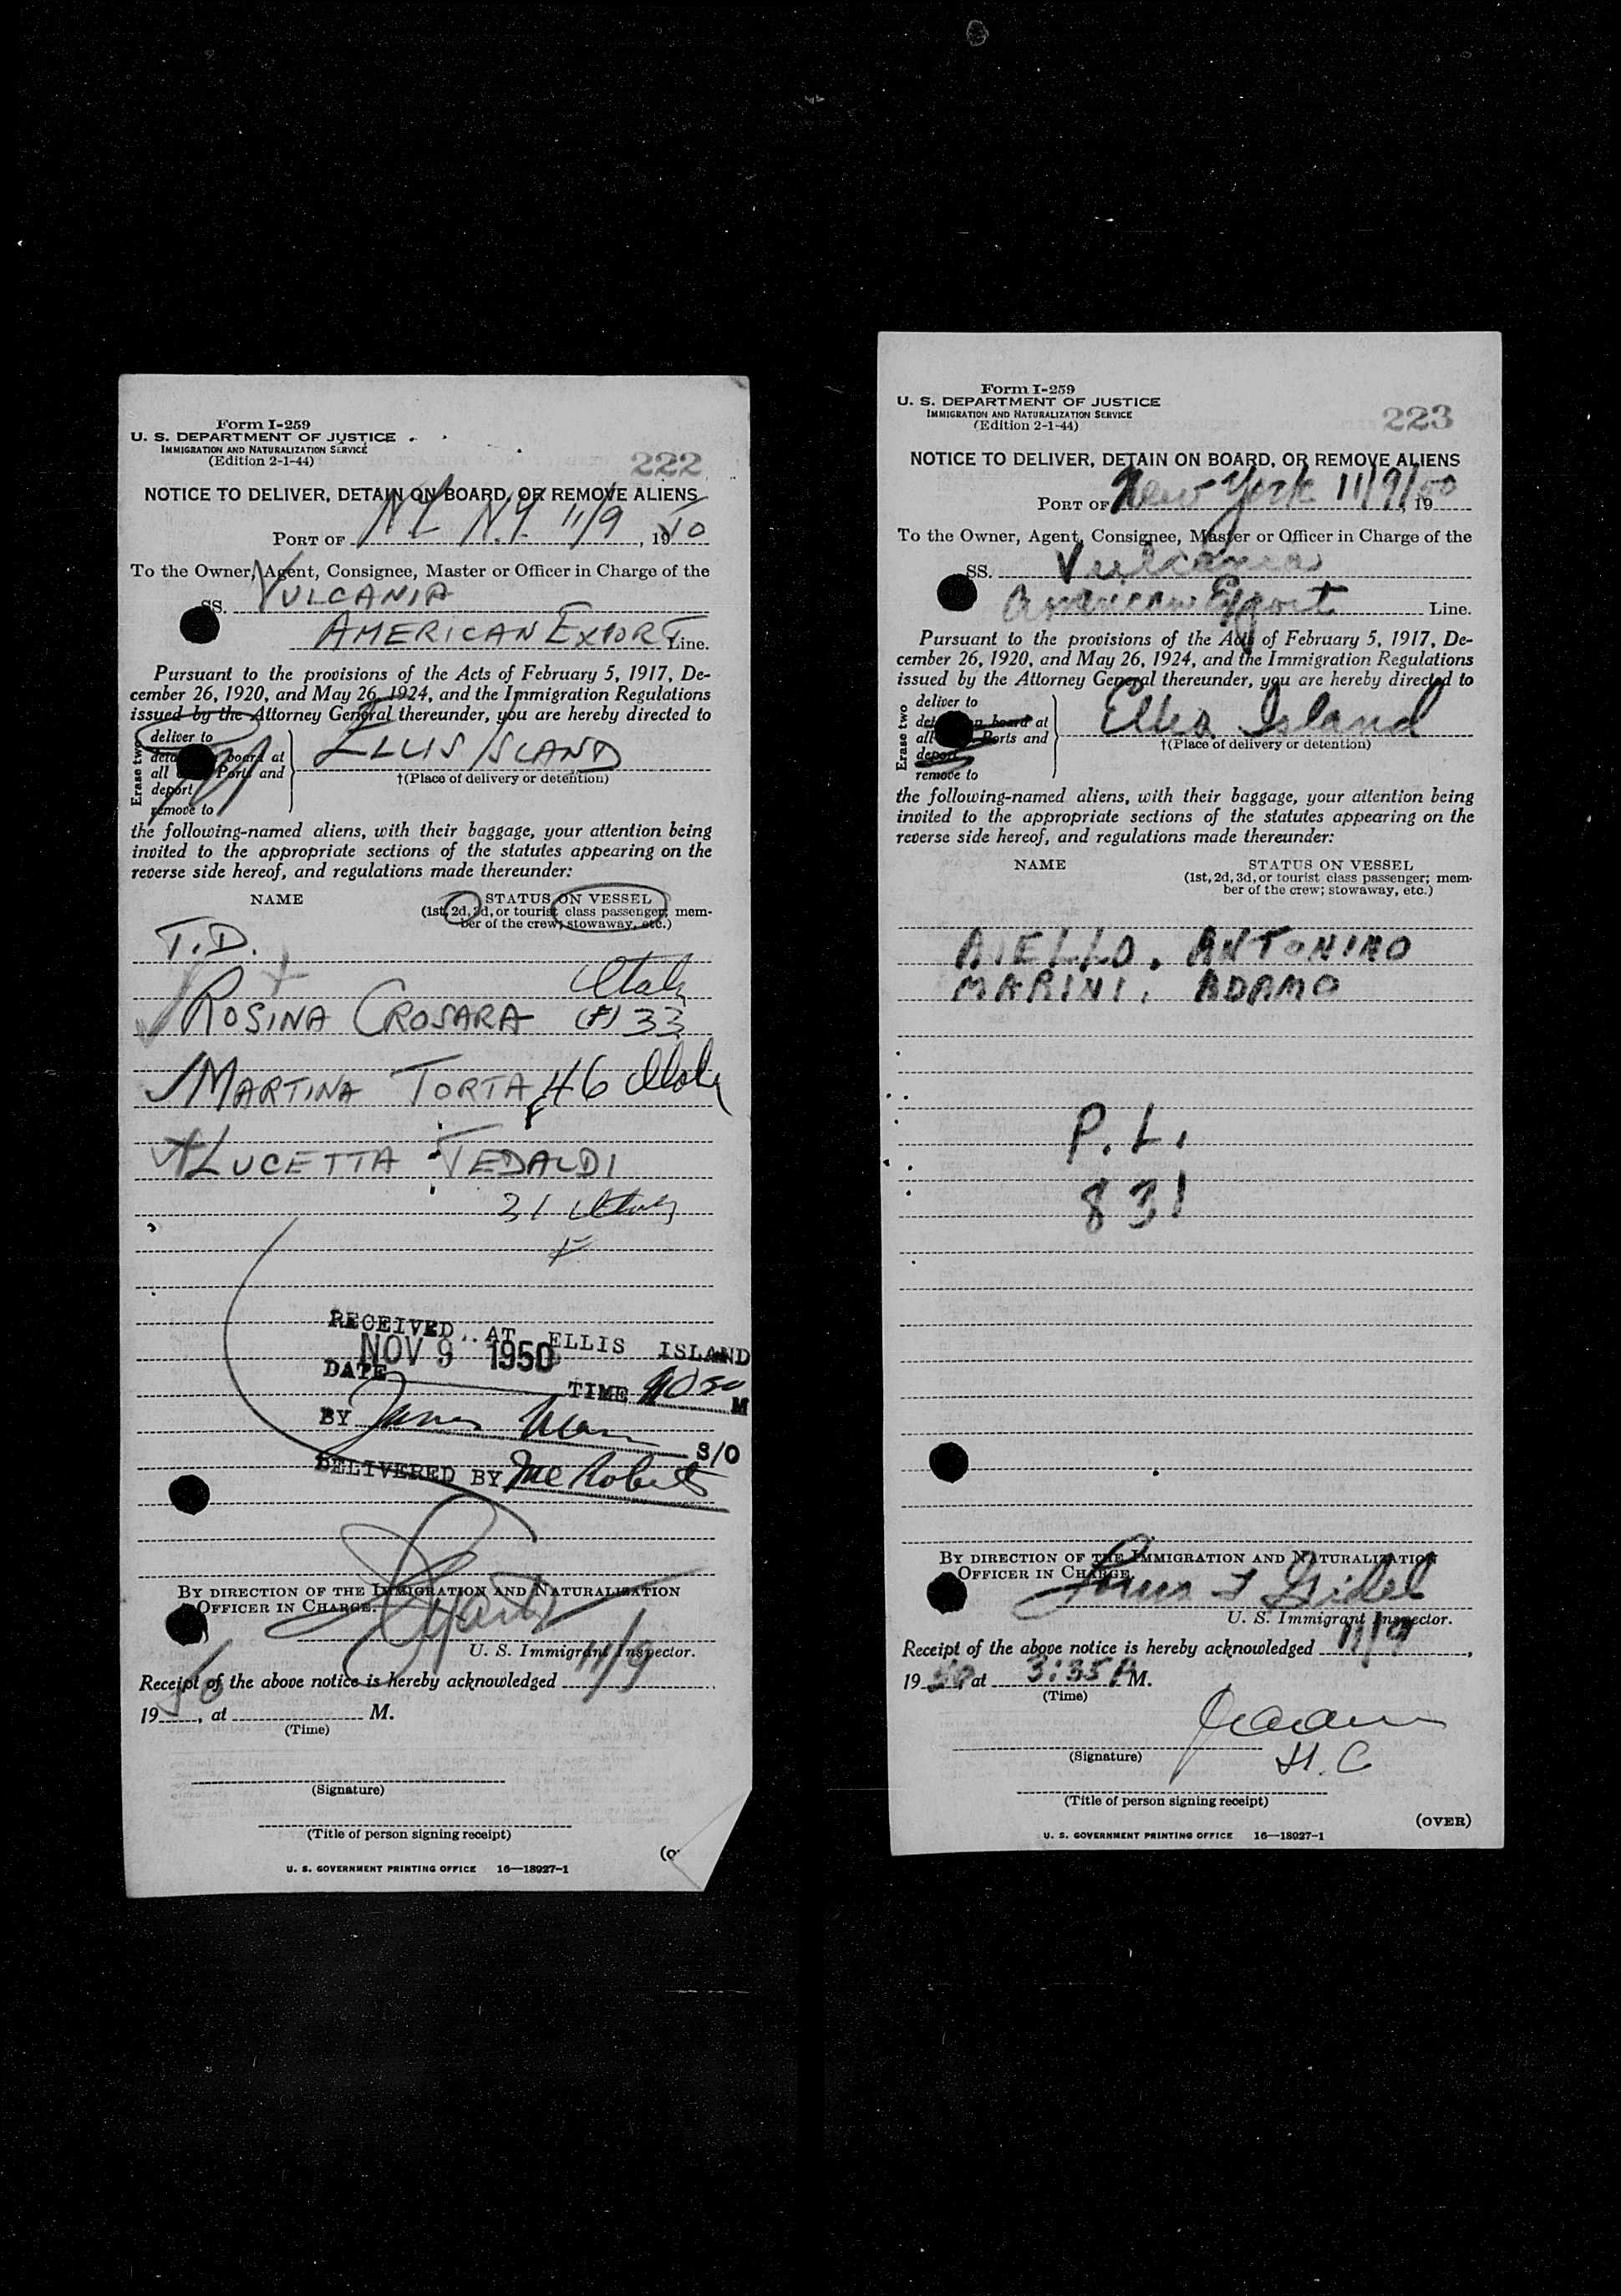 Form I-259
U. S. DEPARTMENT OF JUSTICE
IMMIGRATION AND NATURALIZATION SERVICE
(Edition 2-1-44)
222
NOTICE TO DELIVER, DETAIN ON BOARD, OR REMOVE ALIENS
PORT OF NY N.Y. 11/9, 1950
To the Owner, Agent, Consignee, Master or Officer in Charge of the
SS. VULCANIA
AMERICAN EXPORT Line.
Pursuant to the provisions of the Acts of February 5, 1917, De-
cember 26, 1920, and May 26, 1924, and the Immigration Regulations
issued by the Attorney General thereunder, you are hereby directed to
Erase two
deliver to
board at
all Ports and
deport
remove to
ELLIS ISLAND
†(Place of delivery or detention)
the following-named aliens, with their baggage, your attention being
invited to the appropriate sections of the statutes appearing on the
reverse side hereof, and regulations made thereunder:
NAME STATUS ON VESSEL
(1st, 2d, 3d, or tourist class passenger; mem-
ber of the crew; stowaway, etc.)
T.D.
Italy
ROSINA CROSARA (F) 33
MARTINA TORTA 46 Italy
LUCETTA TEDALDI
31 Italy
F
RECEIVED AT ELLIS ISLAND
NOV 9 1950
DATE TIME M
BY James S/O
DELIVERED BY McRoberts
BY DIRECTION OF THE IMMIGRATION AND NATURALIZATION
OFFICER IN CHARGE.
U. S. Immigrant Inspector.
Receipt of the above notice is hereby acknowledged 11/9
1950, at M.
(Time)
(Signature)
(Title of person signing receipt)
U. S. GOVERNMENT PRINTING OFFICE 16—18927-1
Form I-259
U. S. DEPARTMENT OF JUSTICE
IMMIGRATION AND NATURALIZATION SERVICE
(Edition 2-1-44)
223
NOTICE TO DELIVER, DETAIN ON BOARD, OR REMOVE ALIENS
PORT OF New York 11/9/50, 19
To the Owner, Agent, Consignee, Master or Officer in Charge of the
SS. Vulcania
American Export Line.
Pursuant to the provisions of the Acts of February 5, 1917, De-
cember 26, 1920, and May 26, 1924, and the Immigration Regulations
issued by the Attorney General thereunder, you are hereby directed to
Erase two
deliver to
board at
all Ports and
deport
remove to
Ellis Island
†(Place of delivery or detention)
the following-named aliens, with their baggage, your attention being
invited to the appropriate sections of the statutes appearing on the
reverse side hereof, and regulations made thereunder:
NAME STATUS ON VESSEL
(1st, 2d, 3d, or tourist class passenger; mem-
ber of the crew; stowaway, etc.)
AIELLO, ANTONINO
MARINI, ADAMO
P. L.
831
BY DIRECTION OF THE IMMIGRATION AND NATURALIZATION
OFFICER IN CHARGE.
U. S. Immigrant Inspector.
Receipt of the above notice is hereby acknowledged 11/9,
1950, at 3:35 P M.
(Time)
(Signature)
(Title of person signing receipt)
(OVER)
U. S. GOVERNMENT PRINTING OFFICE 16—18927-1